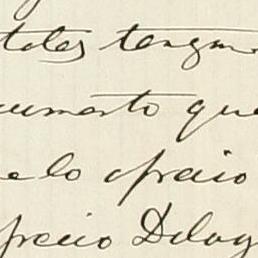 tales tengan
cumento que
elo precio
precio Delag